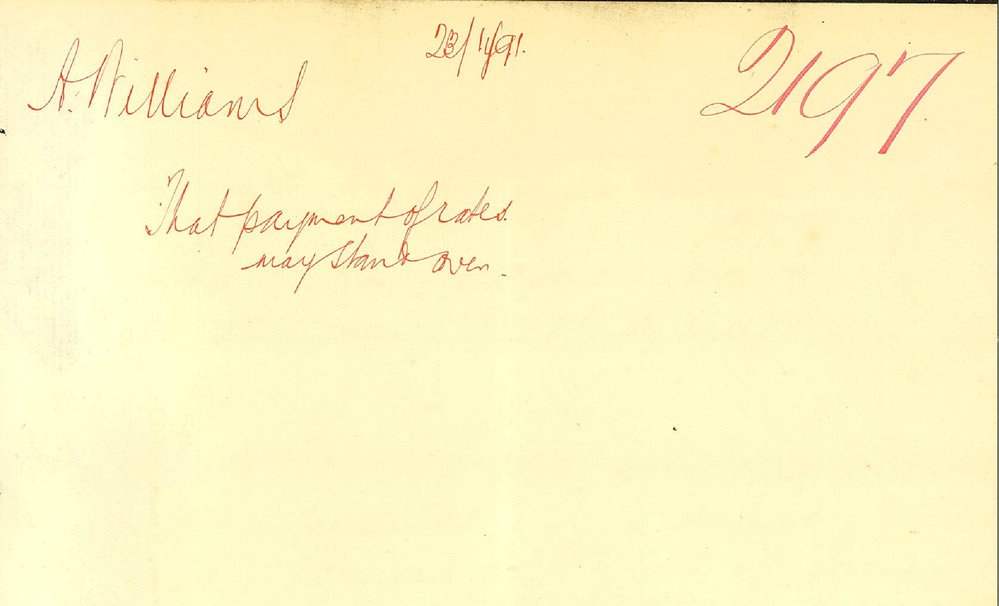 23/1/91.
2197
A. Williams
That payment of rates.
may stand over.